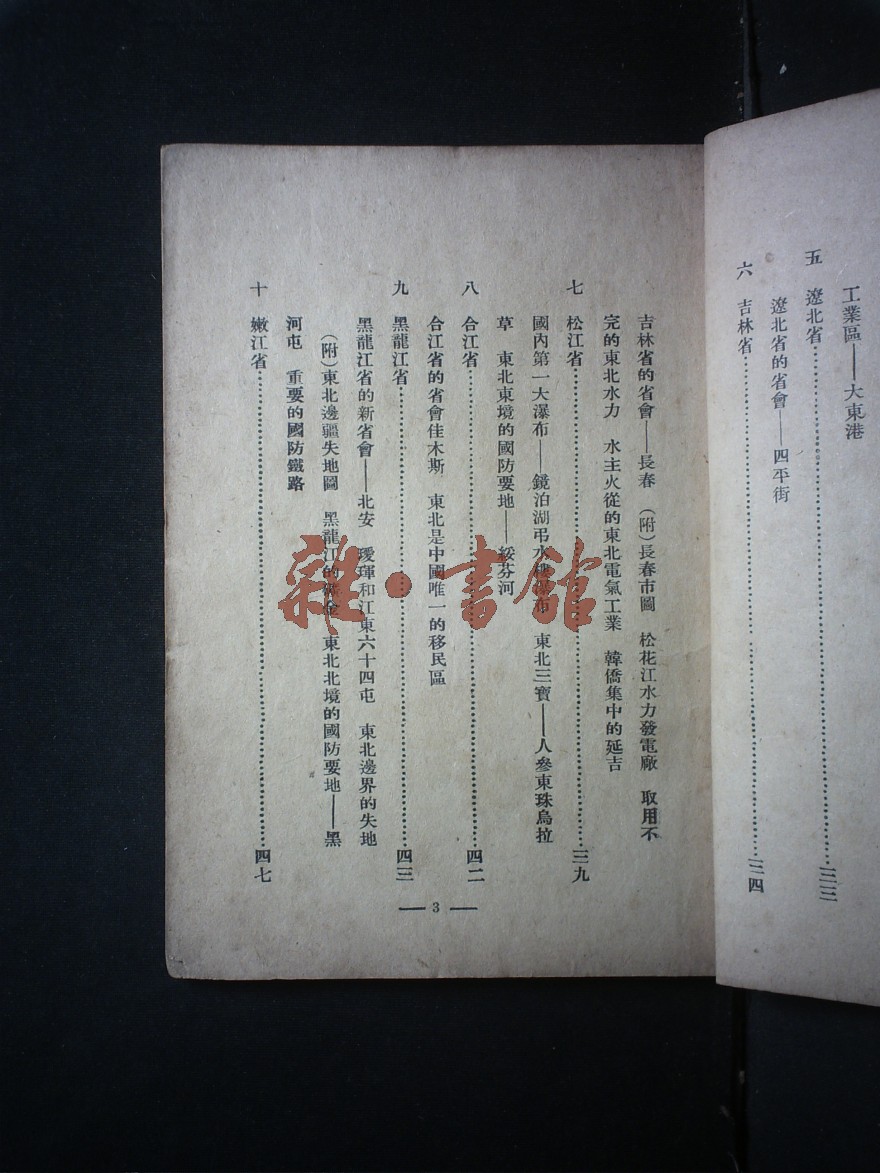 工業區——大東港
五　遼北省……………………三三
遼北省的省會——四平街
六　吉林省……………………三四
吉林省的省會——長春　（附）長春市圖　松花江水力發電廠　取用不
完的東北水力　水主火從的東北電氣工業　韓僑集中的延吉
七　松江省……………………三九
國內第一大瀑布——鏡泊湖弔水樓瀑布　東北三寶——人參東珠烏拉
草　東北東境的國防要地——綏芬河
八　合江省……………………四二
合江省的省會佳木斯　東北是中國唯一的移民區
九　黑龍江省……………………四三
黑龍江省的新省會——北安　璦琿和江東六十四屯　東北邊界的失地
（附）東北邊疆失地圖　黑龍江的金　東北北境的國防要地——黑
河屯　重要的國防鐵路
十　嫩江省……………………四七
— 3 —
雜·書館